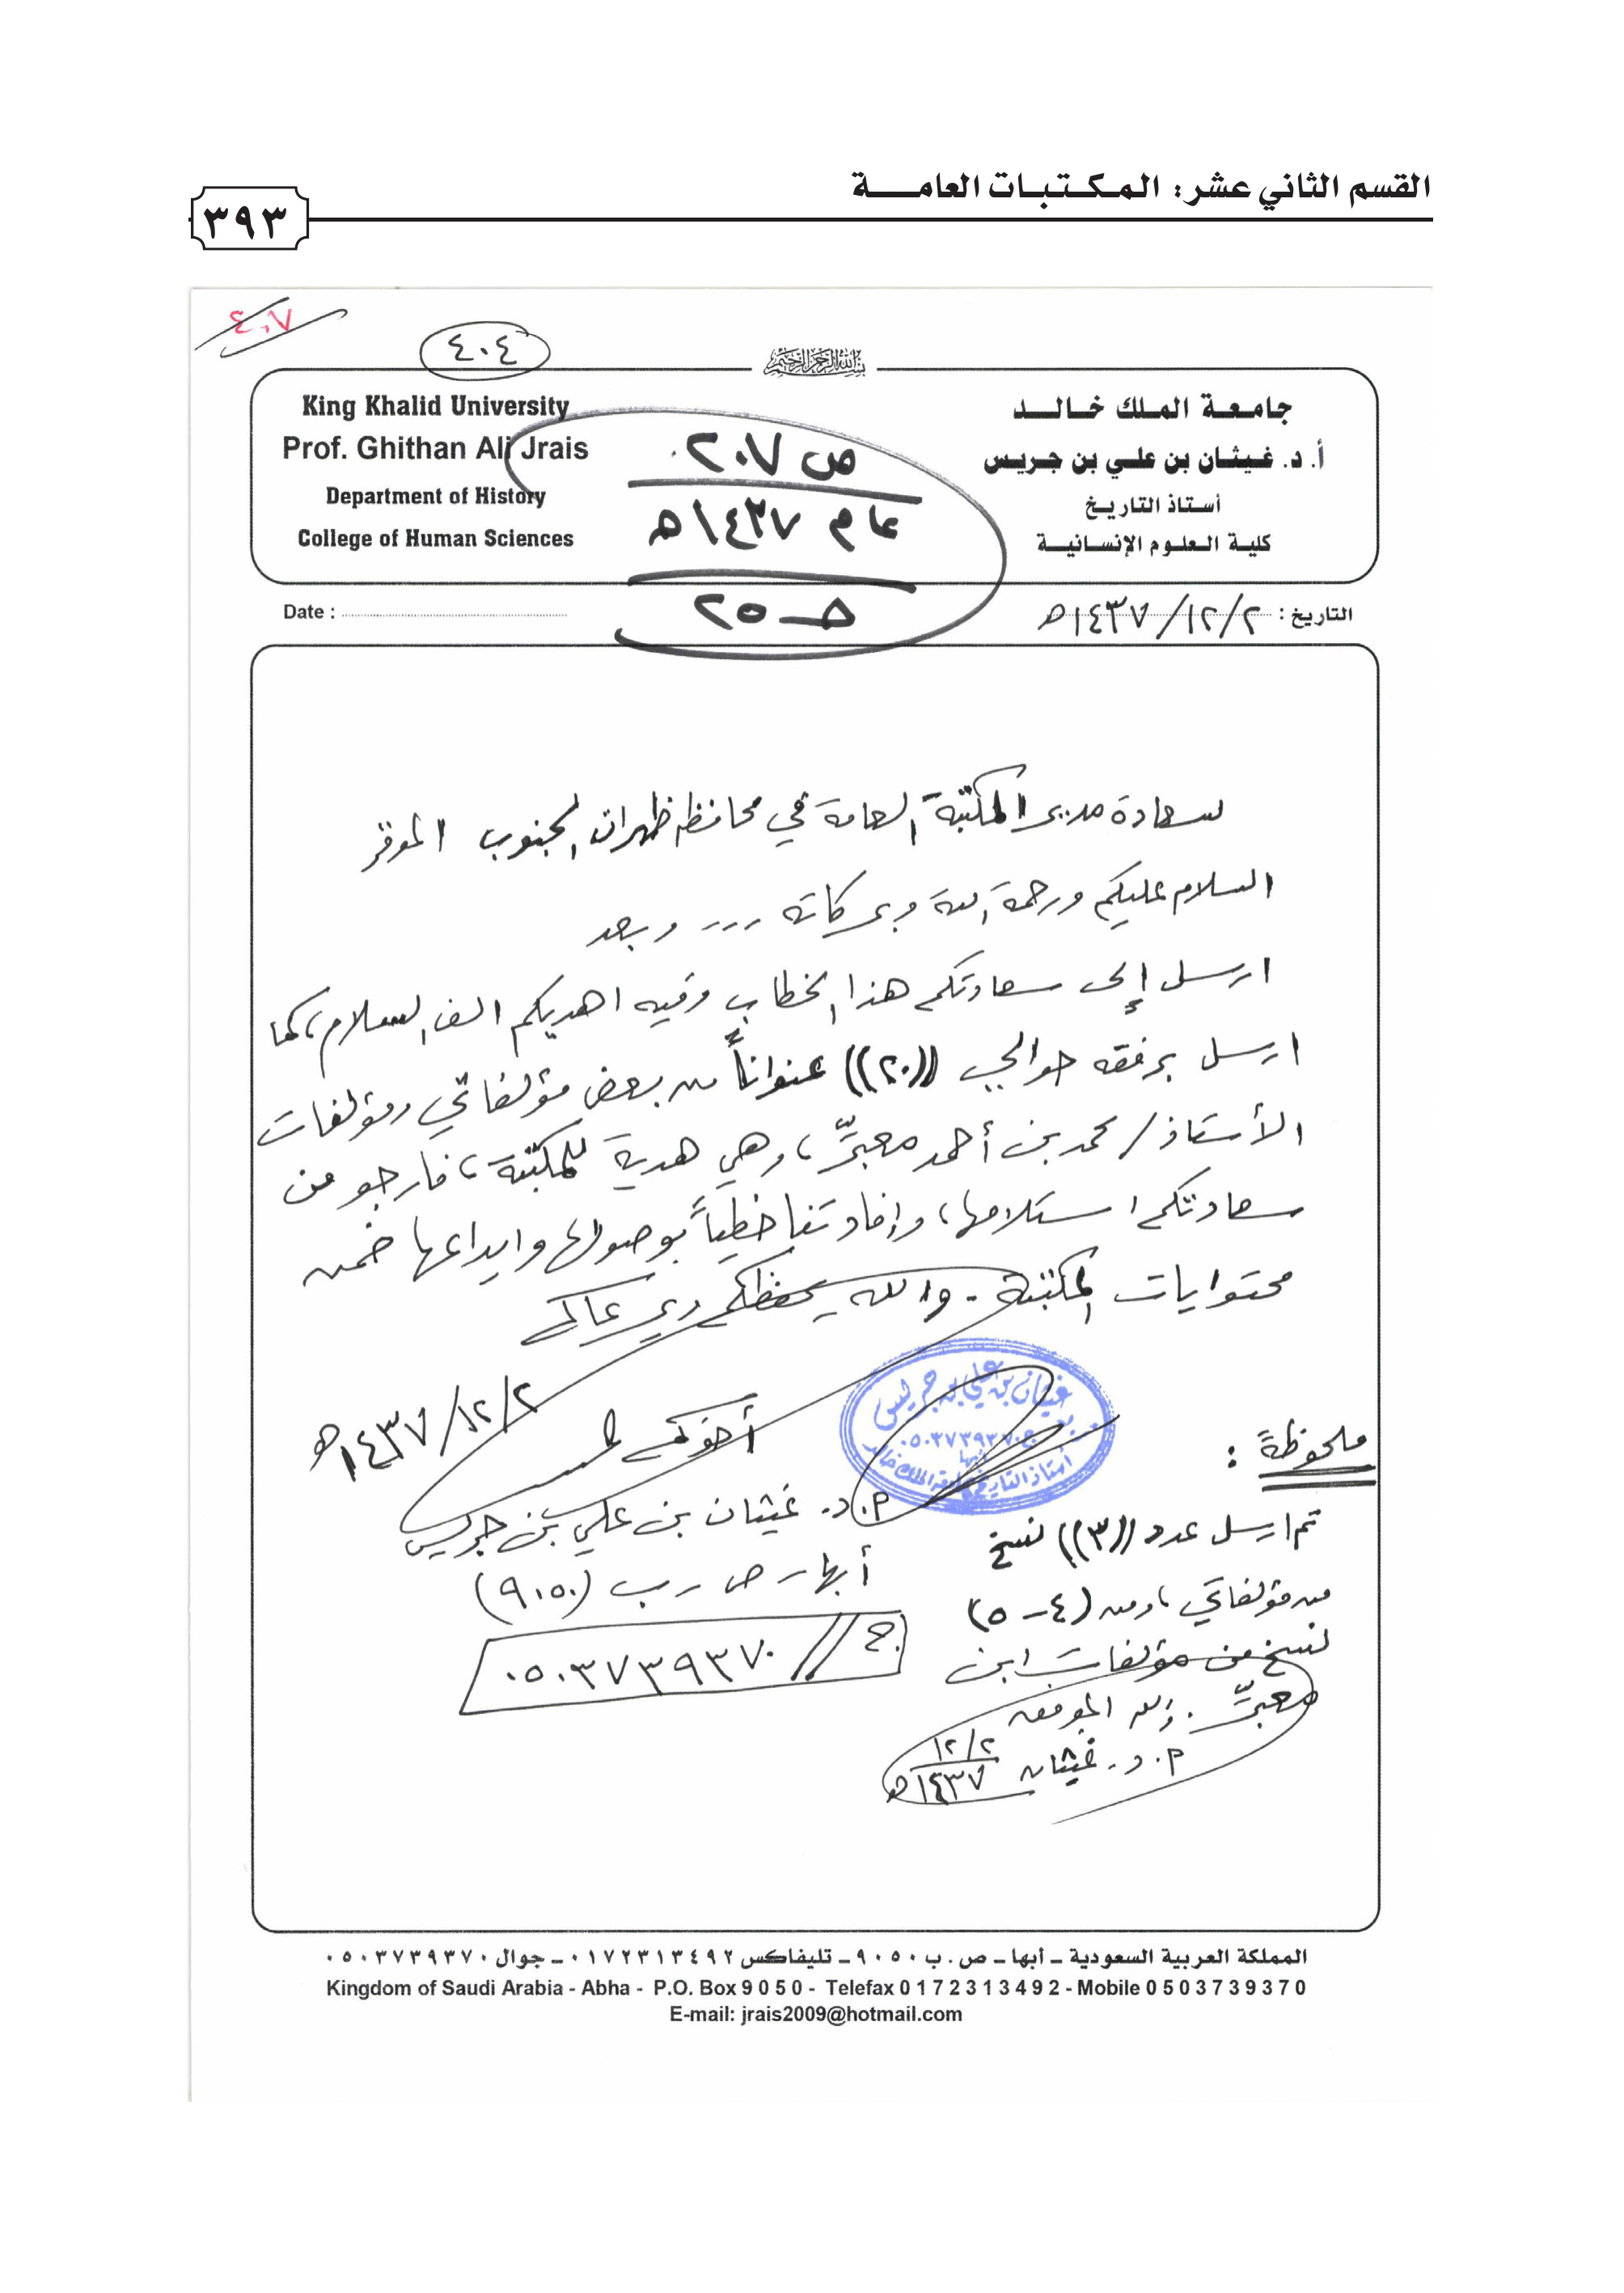 القسم الثاني عشر: المكتبات العامة
٣٩٣
٤٠٧
٤٠٤
بسم الله الرحمن الرحيم
جامعة الملك خالد
أ. د. غيثان بن علي بن جريس
أستاذ التاريخ
كلية العلوم الإنسانية
King Khalid University
Prof. Ghithan Ali Jrais
Department of History
College of Human Sciences
ص ٢٠٧
عام ١٤٣٧هـ
حـ ٢٥
التاريخ : ١٤٣٧/١٢/٢هـ
Date :
سعادة مدير المكتبة العامة في محافظة ظهران الجنوب الموقر
السلام عليكم ورحمة الله وبركاته ... وبعد
ارسل إلى سعادتكم هذا الخطاب وفيه اهديكم الف السلام، كما
ارسل برفقه حوالي ((٢٠)) عنواناً من بعض مؤلفاتي ومؤلفات
الأستاذ/ محمد بن أحمد معبّر، وهي هدية للمكتبة، فارجو من
سعادتكم استلامها، وإفادتنا خطياً بوصولها وايداعها ضمن
محتوايات المكتبة. والله يحفظكم ويرعاكم
١٤٣٧/١٢/٢هـ
أخوكم
أ.د. غيثان بن علي بن جريس
أبها - ص.ب (٩٠٥٠)
ج// ٠٥٠٣٧٣٩٣٧٠
غيثان بن علي بن جريس
ج ٠٥٠٣٧٣٩٣٧٠
أبها
أستاذ التاريخ بجامعة الملك خالد
ملحوظة :
تم ارسل عدد ((٣)) نسخ
من مؤلفاتي، ومن (٤-٥)
نسخ من مؤلفات ابن
معبّر. والله الموفق
أ.د. غيثان ١٢/٢
١٤٣٧هـ
المملكة العربية السعودية ـ أبها ـ ص . ب ٩٠٥٠ ـ تليفاكس ٠١٧٢٣١٣٤٩٢ ـ جوال ٠٥٠٣٧٣٩٣٧٠
Kingdom of Saudi Arabia - Abha - P.O. Box 9 0 5 0 - Telefax 0 1 7 2 3 1 3 4 9 2 - Mobile 0 5 0 3 7 3 9 3 7 0
E-mail: jrais2009@hotmail.com